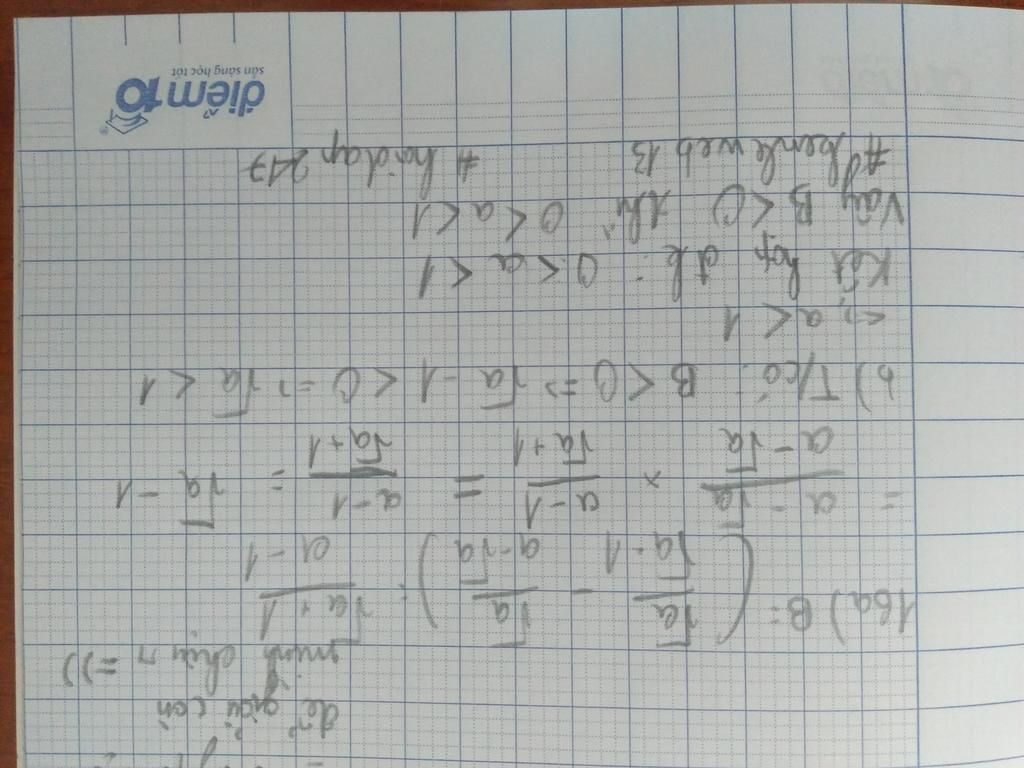 để giải còn
mình chịu =))
16a) B = ( √a / √a - 1 - √a / a - √a ) : √a + 1 / a - 1
= a - √a / a - √a × a - 1 / √a + 1 = a - 1 / √a + 1 = √a - 1
b) T/có: B < 0 => √a - 1 < 0 => √a < 1
<=> a < 1
Kết hợp đk: 0 < a < 1
Vậy B < 0 thì 0 < a < 1
#hoidap247
điểm10
sẵn sàng học tốt